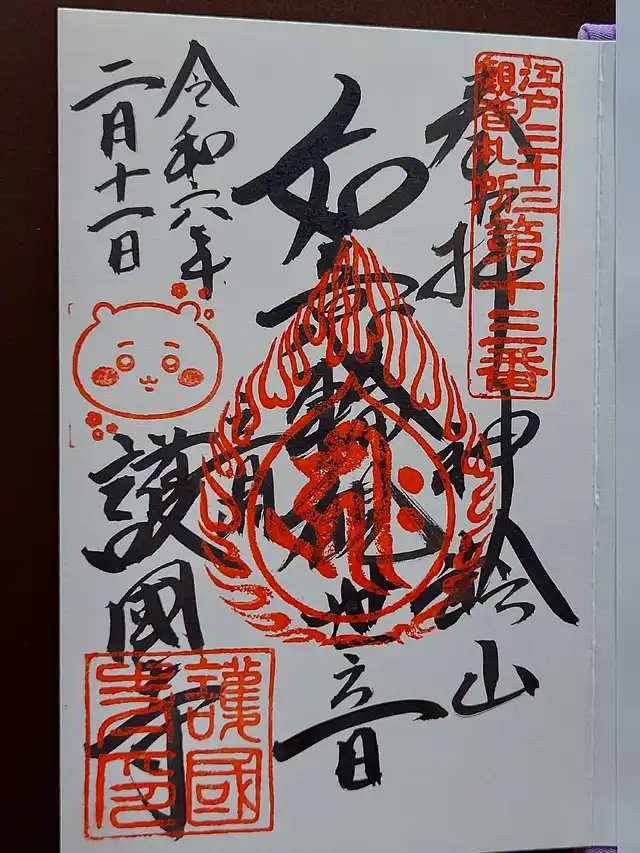 江戸三十三
觀音札所
第十三番
奉拝
神齢山
如意輪観世音
令和六年
二月十一日
護國寺
護國
寺印